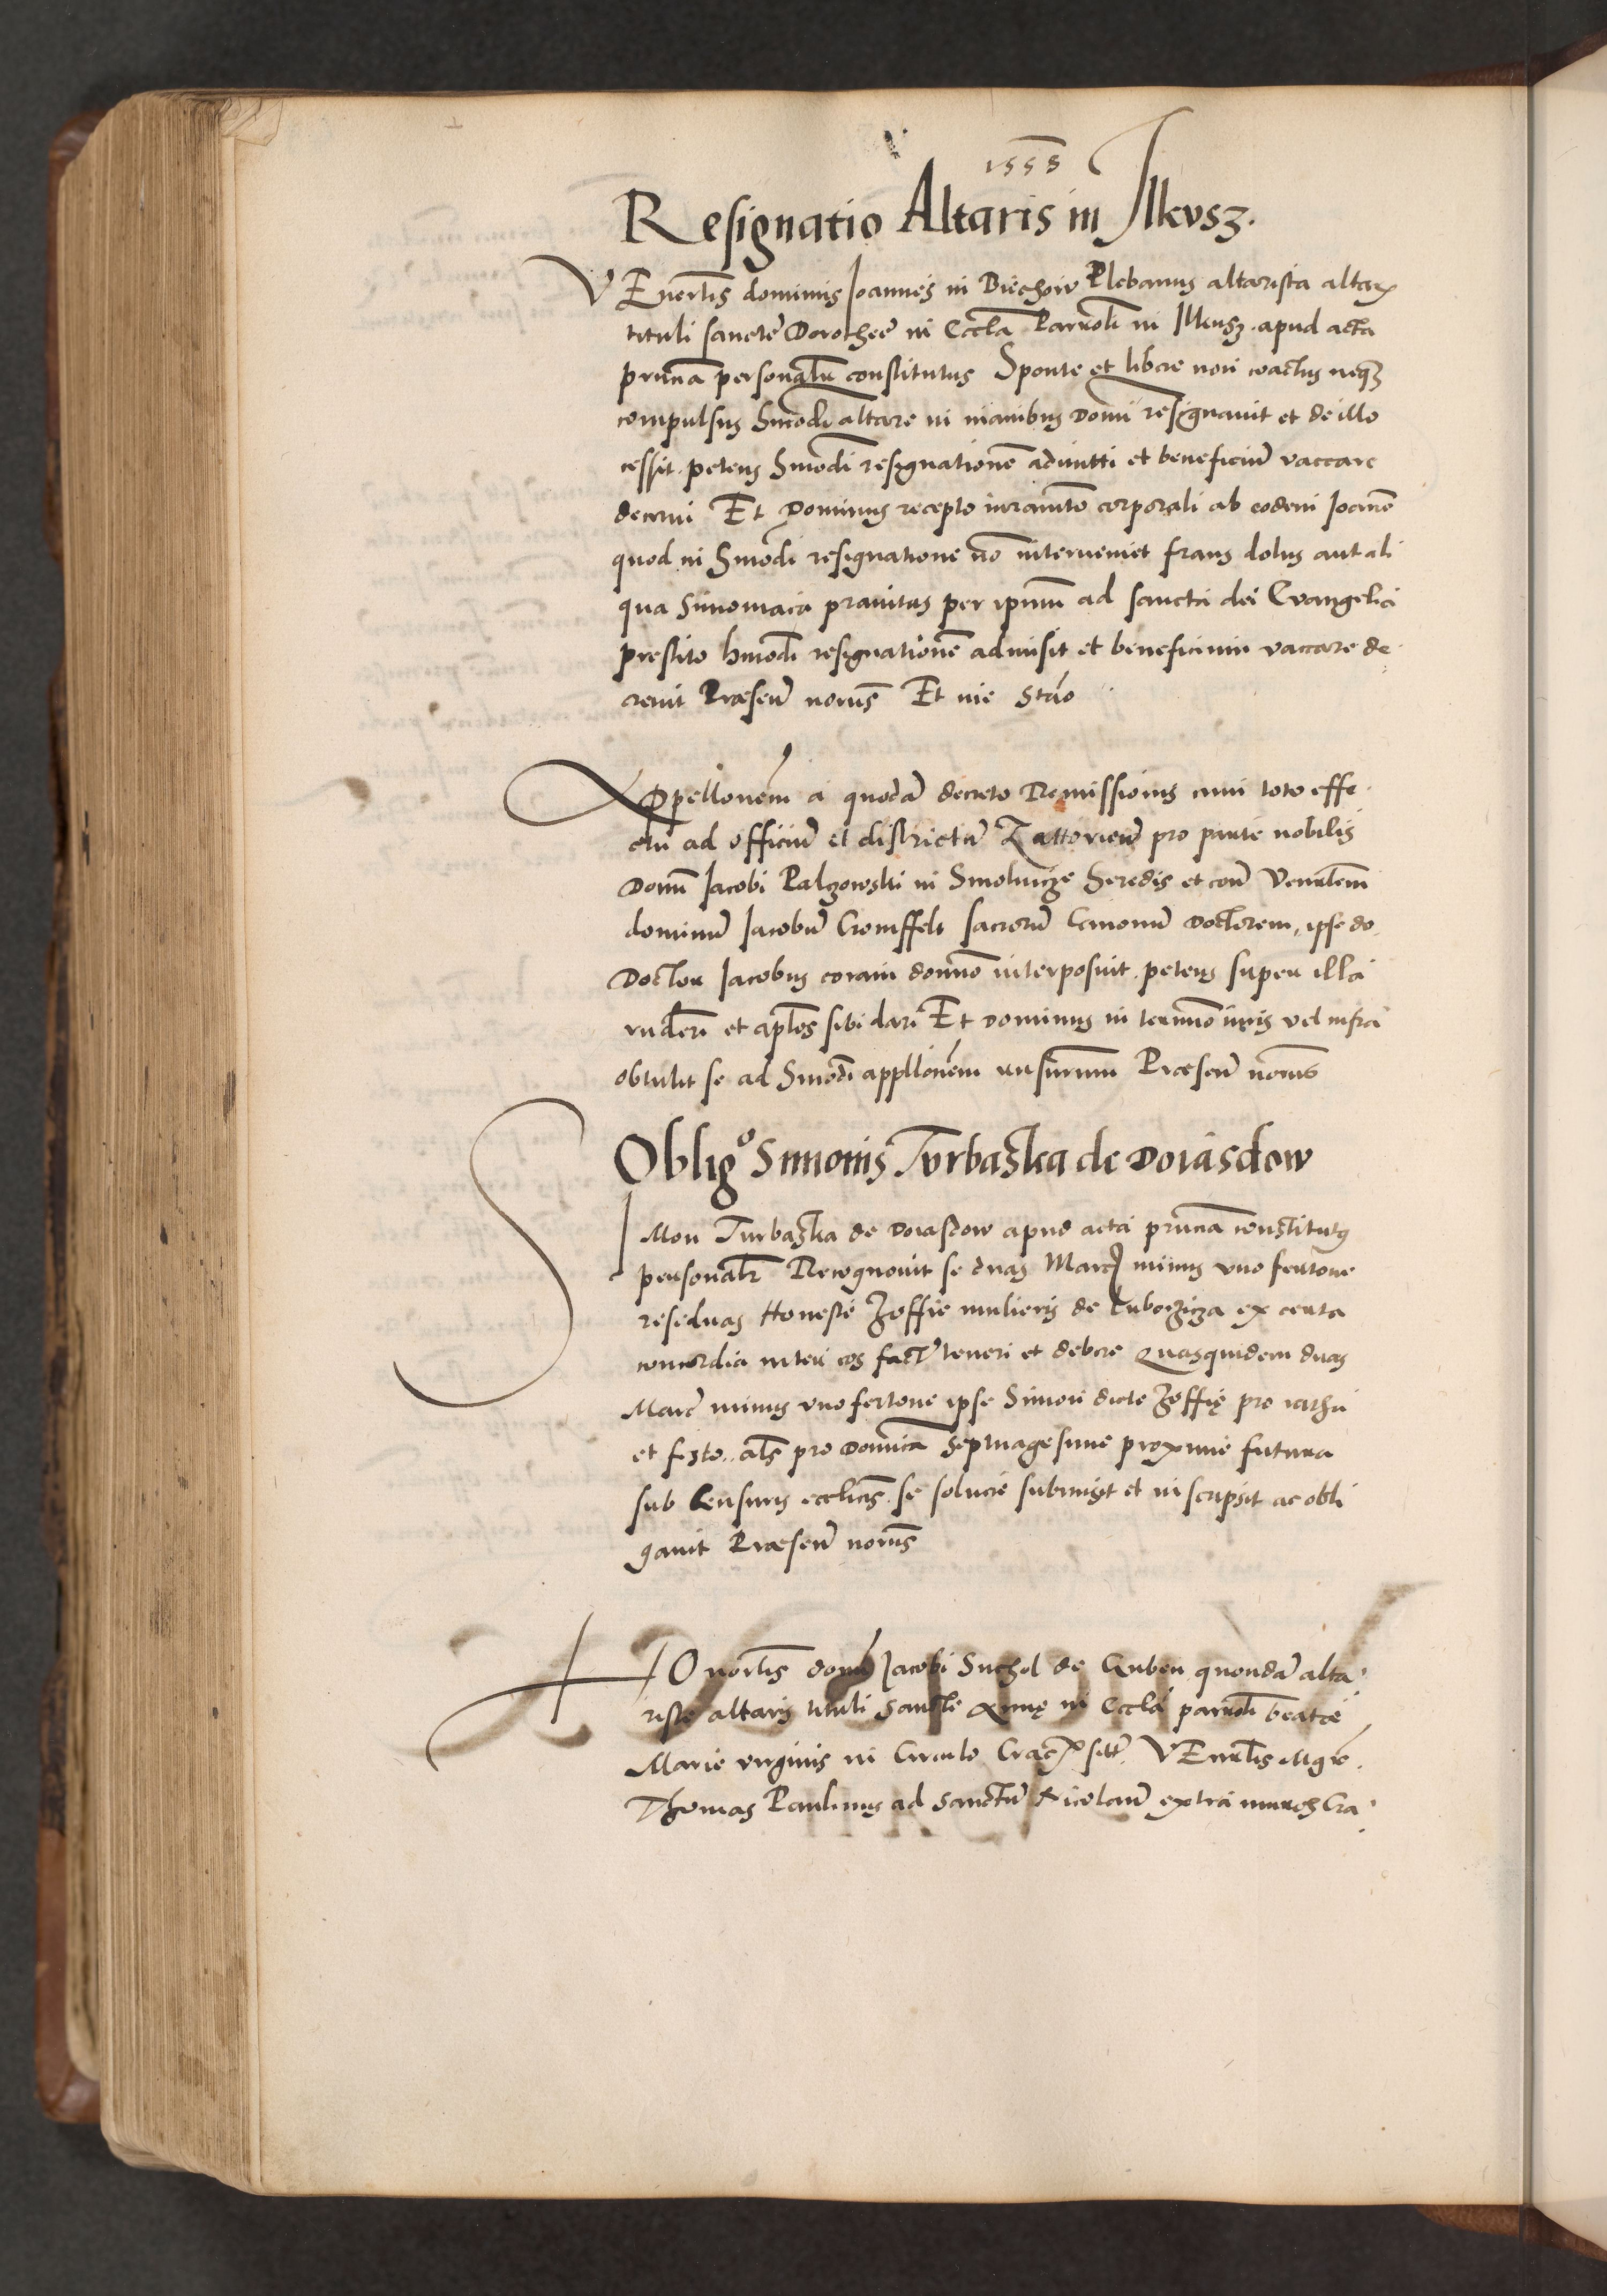 1558
Resignatio Altaris in Ilkvsz.
VEnerłis dominus Joannes in Biechow Plebanus altarista altar
tituli sancte Dorothee in Eccła Parrołi in Ilkusz. apud acta
prńcia personałr constitutus Sponte et libere non coactus neq3
compulsus hmodi altare in manibus Domi resignauit et de illo
cessit. petens hmodi resignationē admitti et beneficiū vaccare
decerni Et Dominus recepto iuramēto corporali ab eodem Joanne
quod in hmodi resignatione nō interueniet fraus dolus aut ali
qua simoniaca prauitas per ipsum ad sancta dei Evangelia
prestito hmodi resignationē admisit et beneficium vaccare de
creuit Præsen norus Et me Stao
Appellonem a quodā decreto Remissionis cum toto effe
ctu ad officiū et districtū Zattorien pro parte nobilis
Domi Jacobi Palczowski in Smolnicze heredis et con Venerłem
dominū Jacobū Cromffelt sacrorū Canonū Doctorem, ipse do.
Doctor Jacobus coram domno interposuit. petens super illa
rńderi et apłos sibi dari Et Dominus in termino iuris vel infra
obtulit se ad hmodi appłlonem rnsurum Præsen norus
Oblig⁰ Simonis Tvrbaszka de Doiasdow
SImon Turbaszka de Doiasdow apud acta prńcia constitutus
personałr Recognovit se duas Marc minus vno fertone
residuas Honeste Zoffie mulieris de Luborzicza ex certa
concordia inter eos fact teneri et debere Quasquidem duas
Marc minus vno fertone ipse Simon dicte Zoffię pro iathi
et festo. als pro Dominica Septuagesime proxime futura
sub Censuris eccłicis. se soluere submisit et inscripsit ac obli
gauit Præsen norus
HOnorłis domi Jacobi Suchol de Guben quondā alta
riste altaris tituli Sancte Annę in Eccła parrołi beatæ
Marie virginis in Circulo Crac sitt. VEnerłis Mgr
Thomas Paulinus ad Sanctū Nicolaū extra muros Cra